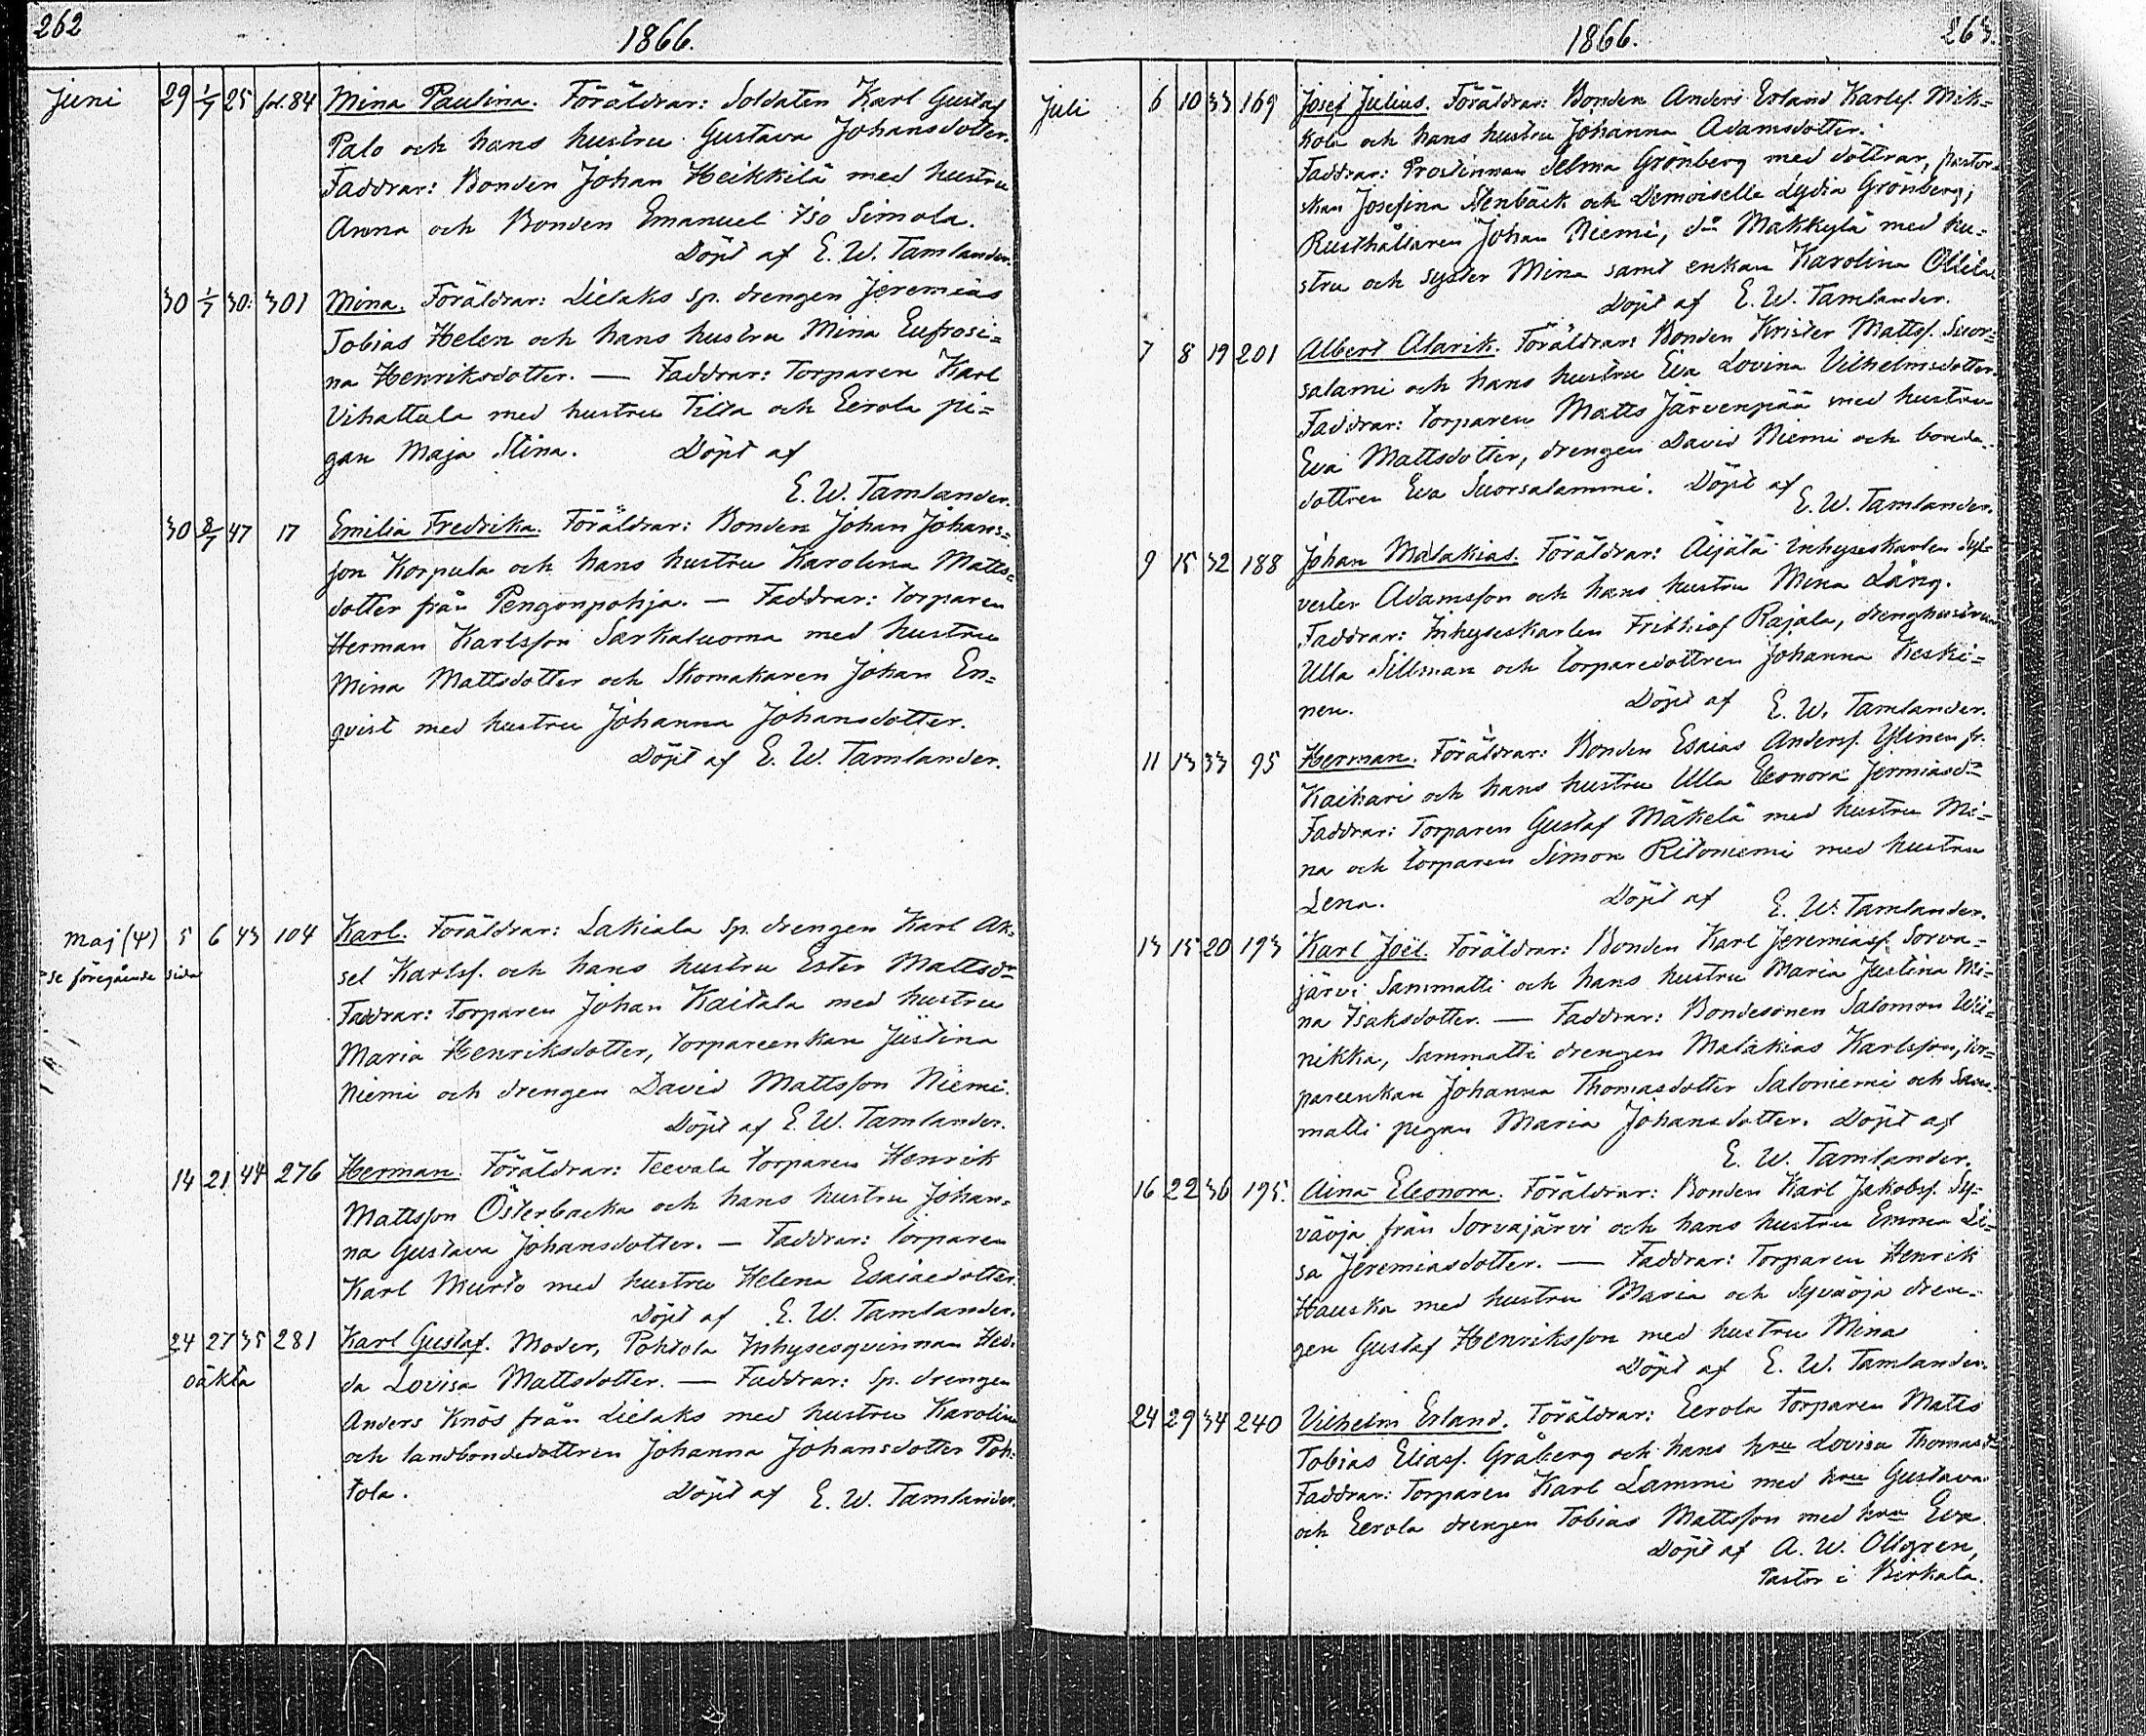 262
1866.
Juni 29 1/7 25 fol. 84 Mina Paulina. Föräldrar: Soldaten Karl Gustaf
Palo och hans hustru Gustava Johansdotter.
Faddrar: Bonden Johan Heikkilä med hustru
Anna och Bonden Emanuel Iso Simola.
Döpt af E. W. Tamlander.
30 1/7 30. 301 Mina. Föräldrar: Lielaks sp. drengen Jeremias
Tobias Helen och hans hustru Mina Eufrosi=
na Henriksdotter. — Faddrar: Torparen Karl
Vihattula med hustru Tilda och Eerola pi=
gan Maja Stina. Döpt af
E. W. Tamlander.
30 8/7 47 17 Emilia Fredrika. Föräldrar: Bonden Johan Johans=
son Korpula och hans hustru Karolina Matts=
dotter från Pengonpohja. — Faddrar: torparen
Herman Karlsson Sarkaluoma med hustru
Mina Mattsdotter och Skomakaren Johan En=
qvist med hustru Johanna Johansdotter.
Döpt af E. W. Tamlander.
Maj (Ψ) 5 6 43 104 Karl. Föräldrar: Lakiala sp. drengen Karl Ak=
se föregående sida sel Karlsf. och hans hustru Ester Mattsdr
Faddrar: torparen Johan Kaitala med hustru
Maria Henriksdotter, torpareenkan Justina
Niemi och drengen David Mattsson Niemi.
Döpt af E. W. Tamlander.
14 21 44 276 Herman. Föräldrar: Teevala torparen Henrik
Mattsson Österbacka och hans hustru Johan=
na Gustava Johansdotter. — Faddrar: torparen
Karl Murto med hustru Helena Esaiaedotter.
Döpt af E. W. Tamlander.
24 27 35 281 Karl Gustaf. Moder, Pohtola Inhysesqvinnan Hed=
oäkta da Lovisa Mattsdotter. — Faddrar: Sp. drengen
Anders Knös från Lielaks med hustru Karolina
och landbondedottren Johanna Johansdotter Poh=
tola. Döpt af E. W. Tamlander.
1866. 263.
Juli 6 10 33 169 Josef Julius. Föräldrar: Bonden Anders Erland Karlsf. Mik=
kola och hans hustru Johanna Adamsdotter.
Faddrar: Prostinnan Selma Grönberg med döttrar, pastor=
skan Josefina Stenbäck och Demoiselle Lydia Grönberg,
Rusthållaren Johan Niemi, do Mäkkylä med hu=
stru och syster Mina samt enkan Karolina Ollila
Döpt af E. W. Tamlander.
7 8 19 201 Albert Alarik. Föräldrar: Bonden Krister Mattsf. Suor=
salami och hans hustru Eva Lovina Vilhelmsdotter.
Faddrar: torparen Matts Järvenpää med hustru
Eva Mattsdotter, drengen David Niemi och bonde=
dottren Eva Suorsalammi. Döpt af
E. W. Tamlander.
9 15 32 188 Johan Malakias. Föräldrar: Äijälä inhyseskarlen Syl=
vester Adamsson och hans hustru Mina Lång.
Faddrar: Inhyseskarlen Frithiof Rajala, drenghustrun
Ulla Sillman och torparedottren Johanna Keski=
nen. Döpt af E. W. Tamlander.
11 13 33 95 Herman. Föräldrar: Bonden Esaias Andersf. Ylinen fr.
Kaihari och hans hustru Ulla Eleonora Jermiasdr
Faddrar: Torparen Gustaf Mäkelä med hustru Mi=
na och torparen Simon Ritoniemi med hustru
Lena. Döpt af E. W. Tamlander.
13 15 20 193 Karl Joël. Föräldrar: Bonden Karl Jeremiasf. Sorva=
järvi Sammatti och hans hustru Maria Justina Mi=
na Isaksdotter. — Faddrar: Bondesonen Salomon Wii=
nikka, Sammatti drengen Malakias Karlsson, tor=
pareenkan Johanna Thomasdotter Saloniemi och Sam=
matti pigan Maria Johansdotter. Döpt af
E. W. Tamlander.
16 22 36 195. Aina Eleonora. Föräldrar: Bonden Karl Jakobsf. Sy=
väoja från Sorvajärvi och hans hustru Emma Li=
sa Jeremiasdotter. — Faddrar: Torparen Henrik
Hauska med hustru Maria och Syväoja dren=
gen Gustaf Henriksson med hustru Mina
Döpt af E. W. Tamlander.
24 29 34 240 Vilhelm Erland. Föräldrar: Eerola torparen Matts
Tobias Eliasf. Gråberg och hans hru Lovisa Thomasdr
Faddrar: Torparen Karl Lammi med hru Gustava
och Eerola drengen Tobias Mattsson med hru Eva.
Döpt af A. W. Ollgren,
Pastor i Birkala.